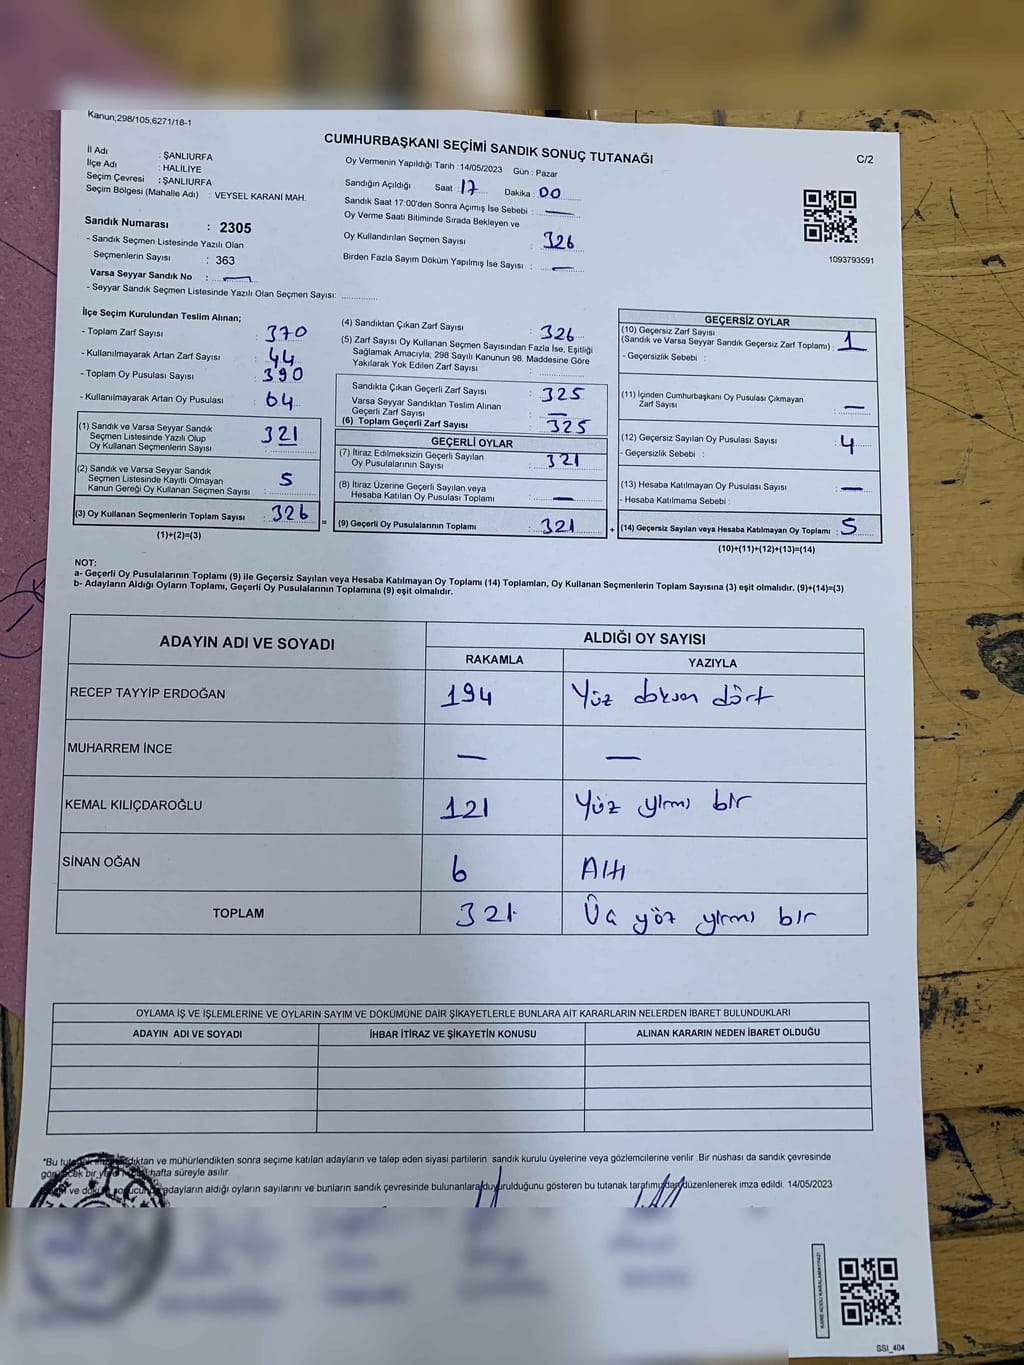 Kanun,298/105,6271/18-1
CUMHURBAŞKANI SEÇİMİ SANDIK SONUÇ TUTANAĞI
C/2
İl Adı : ŞANLIURFA
İlçe Adı : HALİLİYE
Seçim Çevresi : ŞANLIURFA
Seçim Bölgesi (Mahalle Adı) : VEYSEL KARANİ MAH.
Oy Vermenin Yapıldığı Tarih : 14/05/2023 Gün : Pazar
Sandığın Açıldığı Saat : 17 Dakika : 00
Sandık Saat 17:00'den Sonra Açımış İse Sebebi : —
Oy Verme Saati Bitiminde Sırada Bekleyen ve
Oy Kullandırılan Seçmen Sayısı : 326
Birden Fazla Sayım Döküm Yapılmış İse Sayısı : —
1093793591
Sandık Numarası : 2305
- Sandık Seçmen Listesinde Yazılı Olan
Seçmenlerin Sayısı : 363
Varsa Seyyar Sandık No : —
- Seyyar Sandık Seçmen Listesinde Yazılı Olan Seçmen Sayısı: ..............
İlçe Seçim Kurulundan Teslim Alınan;
- Toplam Zarf Sayısı : 370
- Kullanılmayarak Artan Zarf Sayısı : 44
- Toplam Oy Pusulası Sayısı : 390
- Kullanılmayarak Artan Oy Pusulası : 64
(1) Sandık ve Varsa Seyyar Sandık
Seçmen Listesinde Yazılı Olup
Oy Kullanan Seçmenlerin Sayısı : 321
(2) Sandık ve Varsa Seyyar Sandık
Seçmen Listesinde Kayıtlı Olmayan
Kanun Gereği Oy Kullanan Seçmen Sayısı : 5
(3) Oy Kullanan Seçmenlerin Toplam Sayısı : 326
(1)+(2)=(3)
(4) Sandıktan Çıkan Zarf Sayısı : 326
(5) Zarf Sayısı Oy Kullanan Seçmen Sayısından Fazla İse, Eşitliği
Sağlamak Amacıyla; 298 Sayılı Kanunun 98. Maddesine Göre
Yakılarak Yok Edilen Zarf Sayısı :
Sandıkta Çıkan Geçerli Zarf Sayısı : 325
Varsa Seyyar Sandıktan Teslim Alınan
Geçerli Zarf Sayısı : —
(6) Toplam Geçerli Zarf Sayısı : 325
GEÇERLİ OYLAR
(7) İtiraz Edilmeksizin Geçerli Sayılan
Oy Pusulalarının Sayısı : 321
(8) İtiraz Üzerine Geçerli Sayılan veya
Hesaba Katılan Oy Pusulası Toplamı : —
= (9) Geçerli Oy Pusulalarının Toplamı : 321 +
GEÇERSİZ OYLAR
(10) Geçersiz Zarf Sayısı
(Sandık ve Varsa Seyyar Sandık Geçersiz Zarf Toplamı) : 1
- Geçersizlik Sebebi :
(11) İçinden Cumhurbaşkanı Oy Pusulası Çıkmayan
Zarf Sayısı : —
(12) Geçersiz Sayılan Oy Pusulası Sayısı : 4
- Geçersizlik Sebebi :
(13) Hesaba Katılmayan Oy Pusulası Sayısı : —
- Hesaba Katılmama Sebebi :
(14) Geçersiz Sayılan veya Hesaba Katılmayan Oy Toplamı : 5
(10)+(11)+(12)+(13)=(14)
NOT:
a- Geçerli Oy Pusulalarının Toplamı (9) ile Geçersiz Sayılan veya Hesaba Katılmayan Oy Toplamı (14) Toplamları, Oy Kullanan Seçmenlerin Toplam Sayısına (3) eşit olmalıdır. (9)+(14)=(3)
b- Adayların Aldığı Oyların Toplamı, Geçerli Oy Pusulalarının Toplamına (9) eşit olmalıdır.
ADAYIN ADI VE SOYADI ALDIĞI OY SAYISI
RAKAMLA YAZIYLA
RECEP TAYYİP ERDOĞAN 194 Yüz doksan dört
MUHARREM İNCE — —
KEMAL KILIÇDAROĞLU 121 Yüz yirmi bir
SİNAN OĞAN 6 Altı
TOPLAM 321 Üç yüz yirmi bir
OYLAMA İŞ VE İŞLEMLERİNE VE OYLARIN SAYIM VE DÖKÜMÜNE DAİR ŞİKAYETLERLE BUNLARA AİT KARARLARIN NELERDEN İBARET BULUNDUKLARI
ADAYIN ADI VE SOYADI İHBAR İTİRAZ VE ŞİKAYETİN KONUSU ALINAN KARARIN NEDEN İBARET OLDUĞU
*Bu ve mühürlendikten sonra seçime katılan adayların ve talep eden siyasi partilerin sandık kurulu üyelerine veya gözlemcilerine verilir .Bir nüshası da sandık çevresinde
bir hafta süreyle asılır.
adayların aldığı oyların sayılarını ve bunların sandık çevresinde bulunanlara duyurulduğunu gösteren bu tutanak tarafımızdan düzenlenerek imza edildi. 14/05/2023
KARE KODU KARALAMAYINIZ!
SSI_404